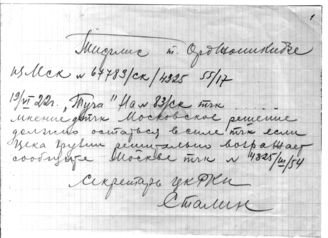 Тифлис т. Орджоникидзе
из Мск № 64783/ск/4925 55/17
19/VI 22г. "Туча" На № 83/ск тчк
мнение дтчк Московское решение
должно остаться в силе тчк если
Цека Грузии решительно возражает
сообщите Москве тчк № 4825/III/54
Секретарь Цк РКП
Сталин